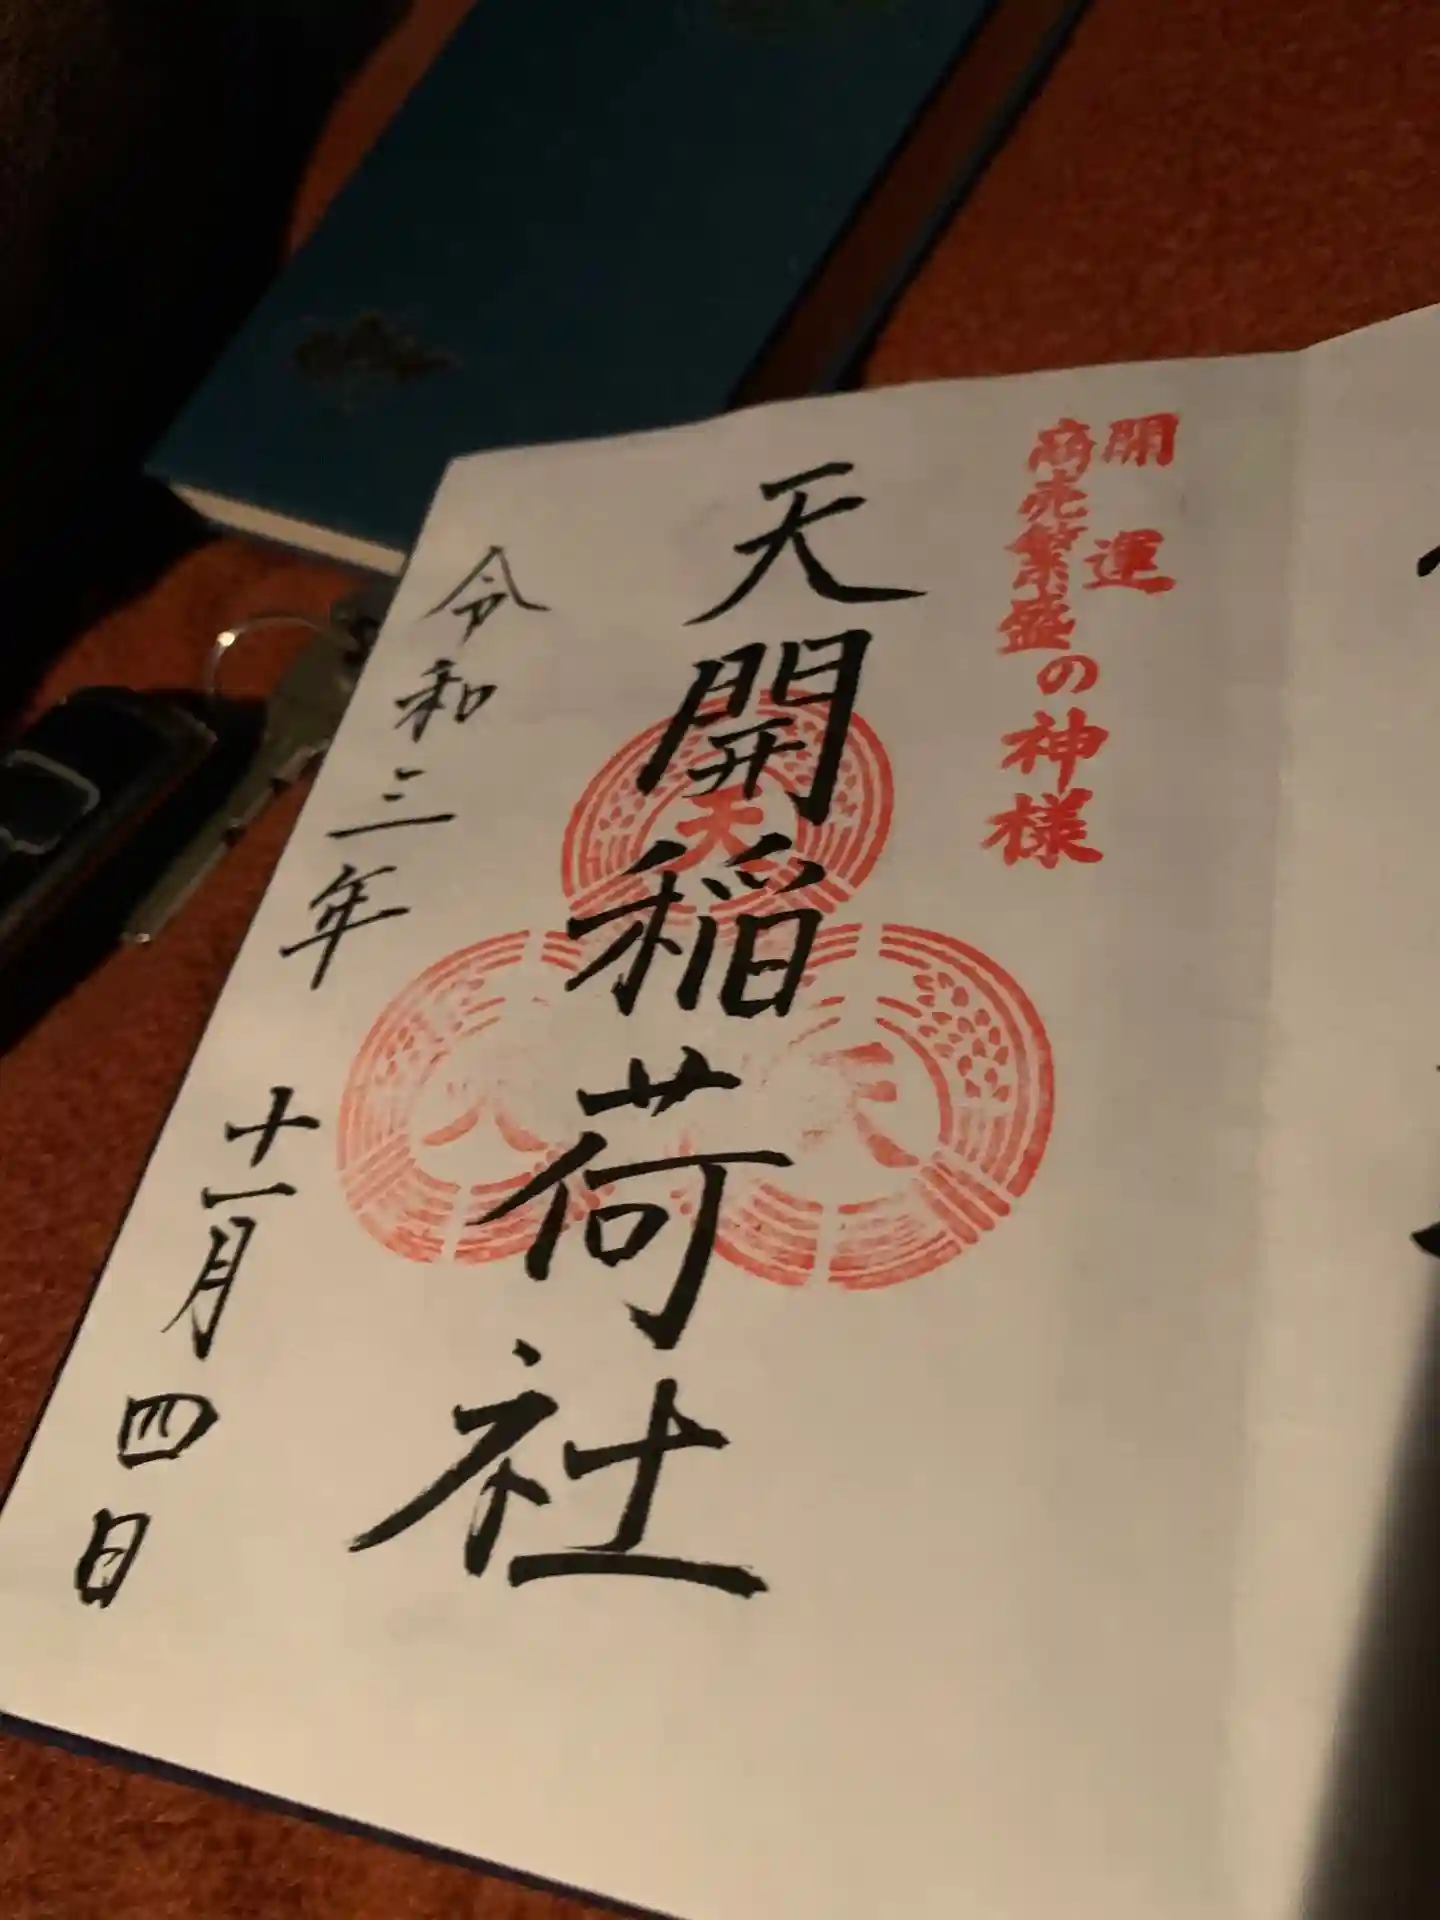 開運
商売繁盛の神様
天開稲荷社
天
天
天
令和三年十一月四日